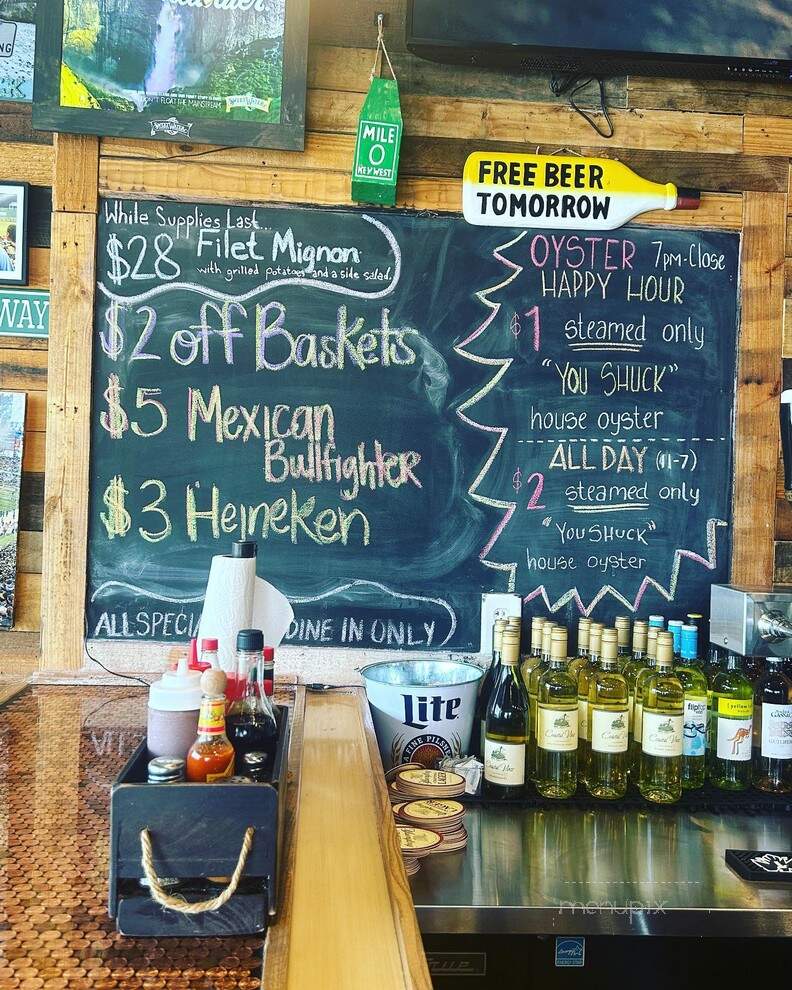 DON'T FLOAT THE MAINSTREAM
SWEETWATER
SWEETWATER
NG
MILE
0
KEY WEST
FREE BEER
TOMORROW
WAY
While Supplies Last...
$28 Filet Mignon
with grilled potatoes and a side salad.
$2 off Baskets
$5 Mexican
Bullfighter
$3 Heineken
ALL SPECIA
DINE IN ONLY
OYSTER 7pm-Close
HAPPY HOUR
$1 steamed only
"YOU SHUCK"
house oyster
ALL DAY (11-7)
$2 steamed only
"YOU SHUCK"
house oyster
Lite
A FINE PILSNER
flipflop
[yellow tail]
menupix
ENERGY STAR